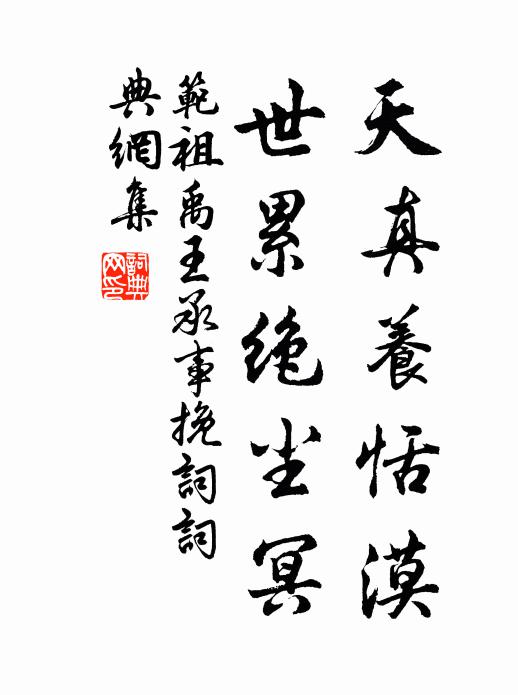 天真養恬漠
世累絶尘冥
範祖禹王承事挽詞詞
典網集
詞典網印